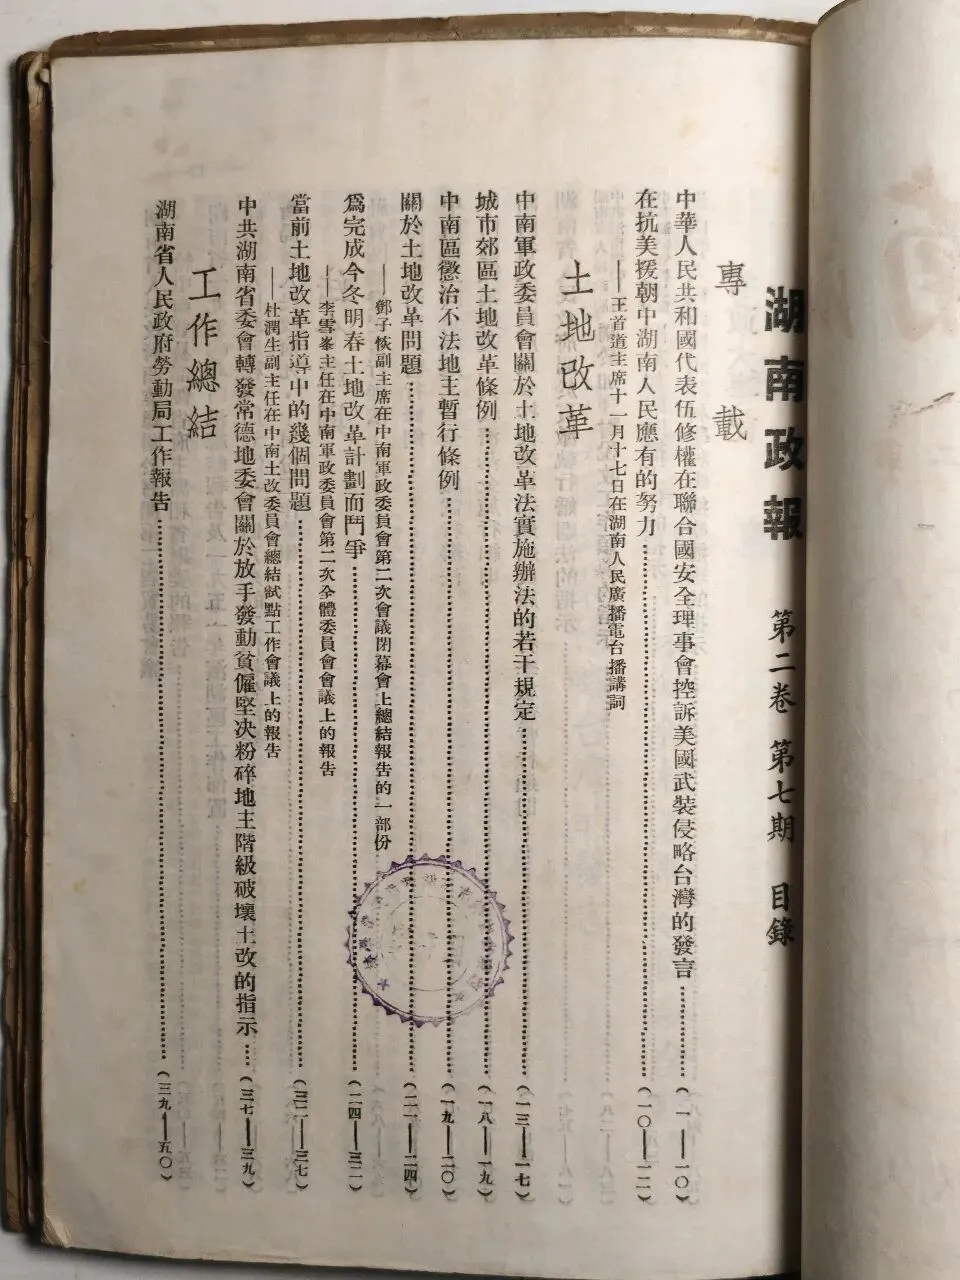 湖南政報 第二卷 第七期 目錄
專載
中華人民共和國代表伍修權在聯合國安全理事會控訴美國武裝侵略台灣的發言…………（一——一〇）
在抗美援朝中湖南人民應有的努力…………（一〇——一二）
——王首道主席十一月十七日在湖南人民廣播電台播講詞
土地改革
中南軍政委員會關於土地改革法實施辦法的若干規定…………（一三——一七）
城市郊區土地改革條例…………（一八——一九）
中南區懲治不法地主暫行條例…………（一九——二〇）
關於土地改革問題…………（二一——二四）
——鄧子恢副主席在中南軍政委員會第二次會議閉幕會上總結報告的一部份
爲完成今冬明春土地改革計劃而鬥爭…………（二四——三二）
——李雪峯主任在中南軍政委員會第二次全體委員會會議上的報告
當前土地改革指導中的幾個問題…………（三二——三七）
——杜潤生副主任在中南土改委員會總結試點工作會議上的報告
中共湖南省委會轉發常德地委會關於放手發動貧僱堅决粉碎地主階級破壞土改的指示……（三七——三九）
工作總結
湖南省人民政府勞動局工作報告…………（三九——五〇）